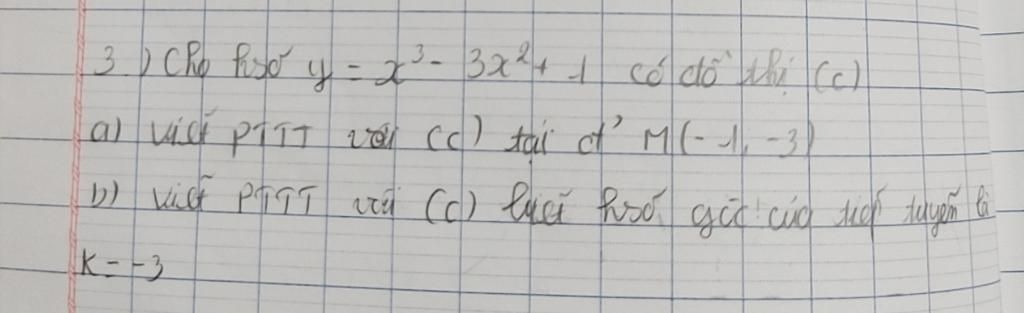 3.) Cho hsố y = x³ - 3x² + 1 có đồ thị (C)
a) Viết PTTT với (C) tại đ' M(-1, -3)
b) Viết PTTT với (C) biết hsố góc của tiếp tuyến là
K = -3